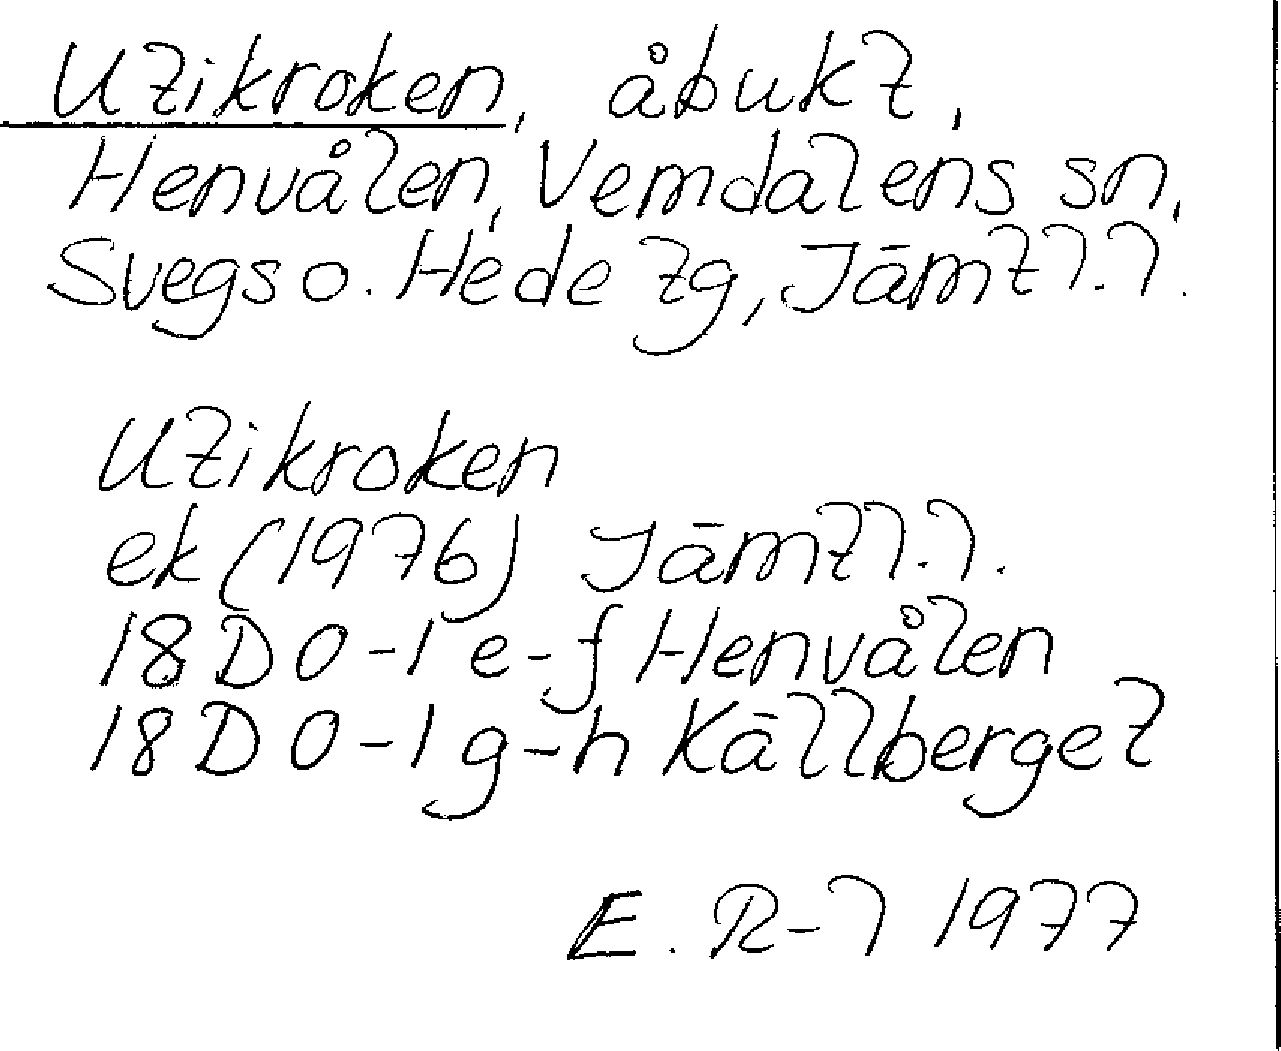 Utikroken, åbukt,
Henvålen, Vemdalens sn,
Svegs o. Hede tg, Jämtl.l.
Utikroken
ek (1976) Jämtl.l.
18 D 0-1 e-f Henvålen
18 D 0-1 g-h Källberget
E. R-l 1977